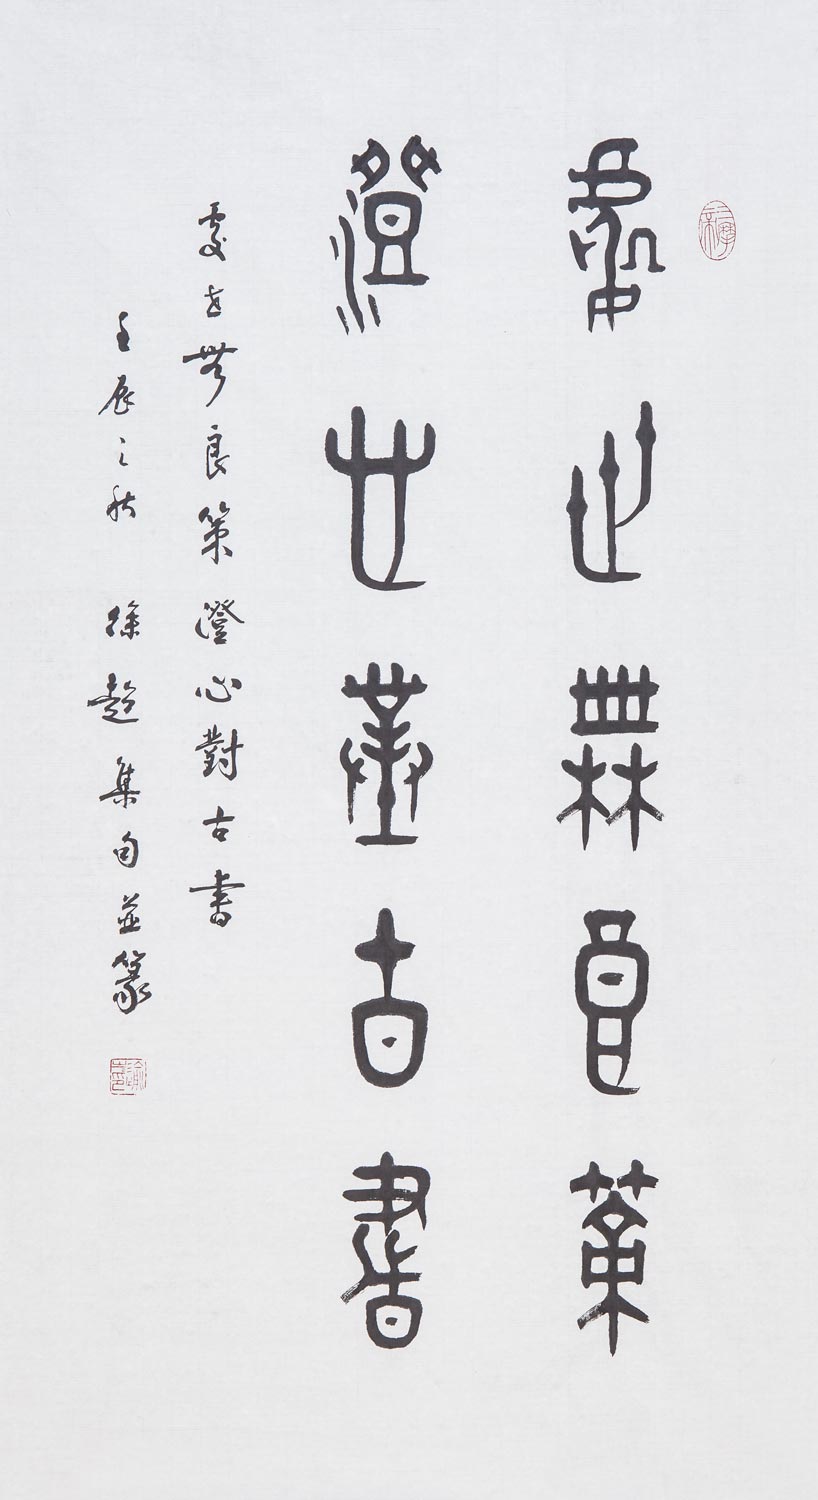 處世無良策
澄心對古書
處世無良策澄心對古書
壬辰之秋 徐超集句並篆